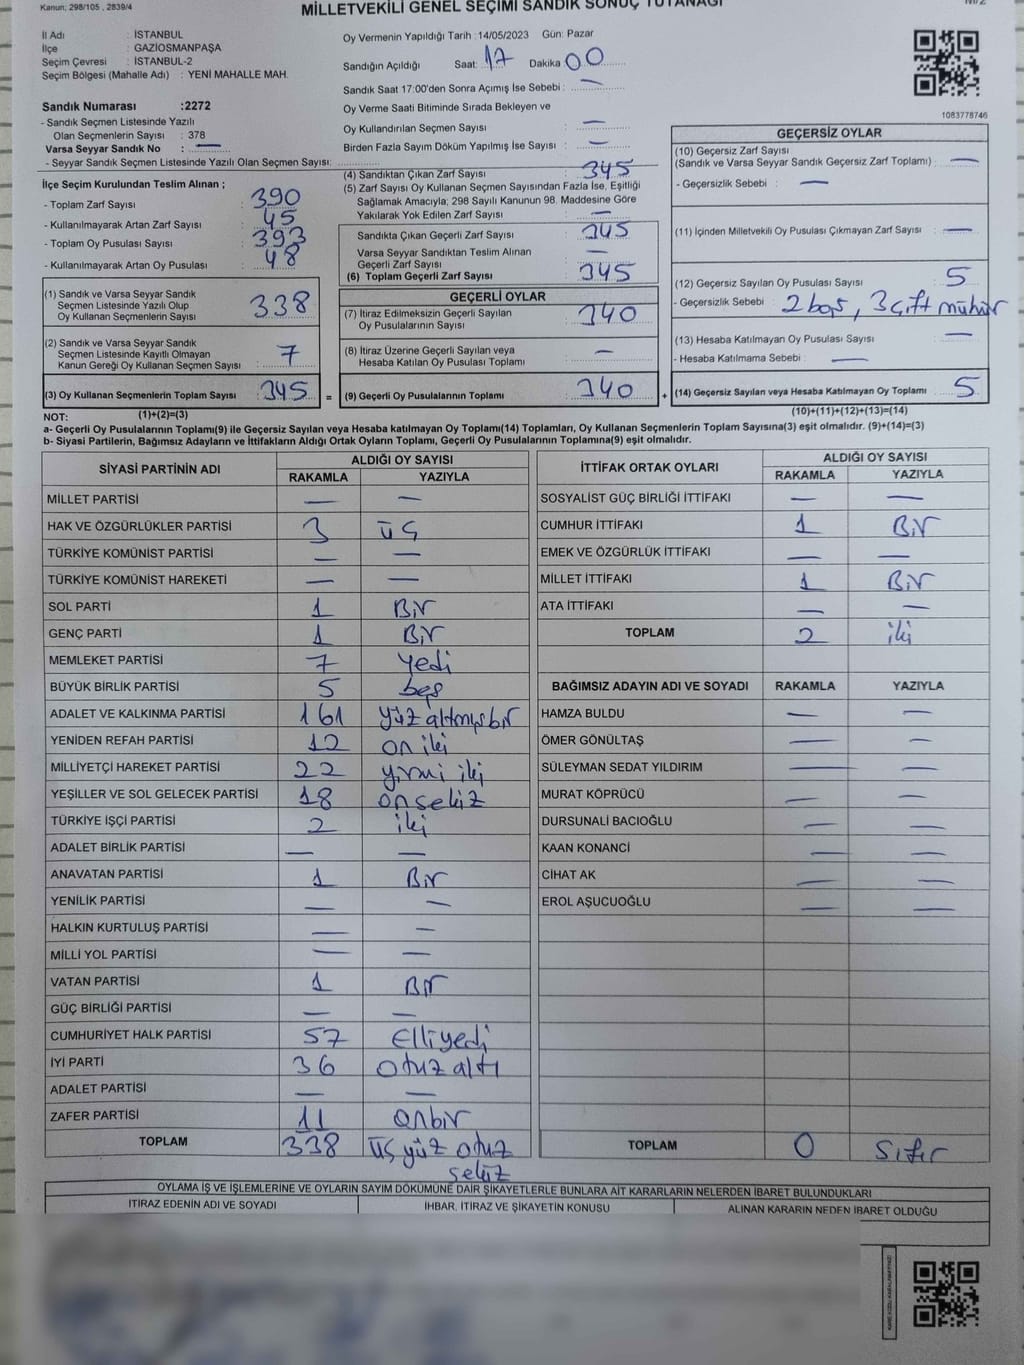 Kanun; 298/105 , 2839/4
MİLLETVEKİLİ GENEL SEÇİMİ SANDIK SONUÇ TUTANAĞI
İl Adı : İSTANBUL
İlçe : GAZİOSMANPAŞA
Seçim Çevresi : İSTANBUL-2
Seçim Bölgesi (Mahalle Adı) : YENİ MAHALLE MAH.
Sandık Numarası :2272
- Sandık Seçmen Listesinde Yazılı
Olan Seçmenlerin Sayısı : 378
Varsa Seyyar Sandık No : —
- Seyyar Sandık Seçmen Listesinde Yazılı Olan Seçmen Sayısı:
Oy Vermenin Yapıldığı Tarih : 14/05/2023 Gün: Pazar
Sandığın Açıldığı Saat: 17 Dakika 00
Sandık Saat 17:00'den Sonra Açımış İse Sebebi : —
Oy Verme Saati Bitiminde Sırada Bekleyen ve
Oy Kullandırılan Seçmen Sayısı : —
Birden Fazla Sayım Döküm Yapılmış İse Sayısı : —
1083778746
İlçe Seçim Kurulundan Teslim Alınan ;
- Toplam Zarf Sayısı : 390
- Kullanılmayarak Artan Zarf Sayısı : 45
- Toplam Oy Pusulası Sayısı : 393
- Kullanılmayarak Artan Oy Pusulası : 48
(1) Sandık ve Varsa Seyyar Sandık
Seçmen Listesinde Yazılı Olup
Oy Kullanan Seçmenlerin Sayısı : 338
(2) Sandık ve Varsa Seyyar Sandık
Seçmen Listesinde Kayıtlı Olmayan
Kanun Gereği Oy Kullanan Seçmen Sayısı : 7
(3) Oy Kullanan Seçmenlerin Toplam Sayısı : 345 =
(4) Sandıktan Çıkan Zarf Sayısı : 345
(5) Zarf Sayısı Oy Kullanan Seçmen Sayısından Fazla İse, Eşitliği
Sağlamak Amacıyla; 298 Sayılı Kanunun 98. Maddesine Göre
Yakılarak Yok Edilen Zarf Sayısı : —
Sandıkta Çıkan Geçerli Zarf Sayısı : 345
Varsa Seyyar Sandıktan Teslim Alınan
Geçerli Zarf Sayısı : —
(6) Toplam Geçerli Zarf Sayısı : 345
GEÇERLİ OYLAR
(7) İtiraz Edilmeksizin Geçerli Sayılan
Oy Pusulalarının Sayısı : 340
(8) İtiraz Üzerine Geçerli Sayılan veya
Hesaba Katılan Oy Pusulası Toplamı : —
(9) Geçerli Oy Pusulalarının Toplamı : 340 +
GEÇERSİZ OYLAR
(10) Geçersiz Zarf Sayısı
(Sandık ve Varsa Seyyar Sandık Geçersiz Zarf Toplamı) : —
- Geçersizlik Sebebi : —
(11) İçinden Milletvekili Oy Pusulası Çıkmayan Zarf Sayısı : —
(12) Geçersiz Sayılan Oy Pusulası Sayısı : 5
- Geçersizlik Sebebi : 2 boş, 3 çift mühür
(13) Hesaba Katılmayan Oy Pusulası Sayısı : —
- Hesaba Katılmama Sebebi : —
(14) Geçersiz Sayılan veya Hesaba Katılmayan Oy Toplamı : 5
NOT: (1)+(2)=(3) (10)+(11)+(12)+(13)=(14)
a- Geçerli Oy Pusulalarının Toplamı(9) ile Geçersiz Sayılan veya Hesaba katılmayan Oy Toplamı(14) Toplamları, Oy Kullanan Seçmenlerin Toplam Sayısına(3) eşit olmalıdır. (9)+(14)=(3)
b- Siyasi Partilerin, Bağımsız Adayların ve İttifakların Aldığı Ortak Oyların Toplamı, Geçerli Oy Pusulalarının Toplamına(9) eşit olmalıdır.
SİYASİ PARTİNİN ADI ALDIĞI OY SAYISI
RAKAMLA YAZIYLA
MİLLET PARTİSİ — —
HAK VE ÖZGÜRLÜKLER PARTİSİ 3 üç
TÜRKİYE KOMÜNİST PARTİSİ — —
TÜRKİYE KOMÜNİST HAREKETİ — —
SOL PARTİ 1 Bir
GENÇ PARTİ 1 Bir
MEMLEKET PARTİSİ 7 yedi
BÜYÜK BİRLİK PARTİSİ 5 beş
ADALET VE KALKINMA PARTİSİ 161 yüz altmış bir
YENİDEN REFAH PARTİSİ 12 on iki
MİLLİYETÇİ HAREKET PARTİSİ 22 yirmi iki
YEŞİLLER VE SOL GELECEK PARTİSİ 18 onsekiz
TÜRKİYE İŞÇİ PARTİSİ 2 iki
ADALET BİRLİK PARTİSİ — —
ANAVATAN PARTİSİ 1 Bir
YENİLİK PARTİSİ — —
HALKIN KURTULUŞ PARTİSİ — —
MİLLİ YOL PARTİSİ — —
VATAN PARTİSİ 1 Bir
GÜÇ BİRLİĞİ PARTİSİ — —
CUMHURİYET HALK PARTİSİ 57 Elliyedi
İYİ PARTİ 36 otuz altı
ADALET PARTİSİ — —
ZAFER PARTİSİ 11 onbir
TOPLAM 338 üç yüz otuz
sekiz
İTTİFAK ORTAK OYLARI ALDIĞI OY SAYISI
RAKAMLA YAZIYLA
SOSYALİST GÜÇ BİRLİĞİ İTTİFAKI — —
CUMHUR İTTİFAKI 1 Bir
EMEK VE ÖZGÜRLÜK İTTİFAKI — —
MİLLET İTTİFAKI 1 Bir
ATA İTTİFAKI — —
TOPLAM 2 iki
BAĞIMSIZ ADAYIN ADI VE SOYADI RAKAMLA YAZIYLA
HAMZA BULDU — —
ÖMER GÖNÜLTAŞ — —
SÜLEYMAN SEDAT YILDIRIM — —
MURAT KÖPRÜCÜ — —
DURSUNALİ BACIOĞLU — —
KAAN KONANCİ — —
CİHAT AK — —
EROL AŞUCUOĞLU — —
TOPLAM 0 Sıfır
OYLAMA İŞ VE İŞLEMLERİNE VE OYLARIN SAYIM DÖKÜMÜNE DAİR ŞİKAYETLERLE BUNLARA AİT KARARLARIN NELERDEN İBARET BULUNDUKLARI
İTİRAZ EDENİN ADI VE SOYADI İHBAR, İTİRAZ VE ŞİKAYETİN KONUSU ALINAN KARARIN NEDEN İBARET OLDUĞU